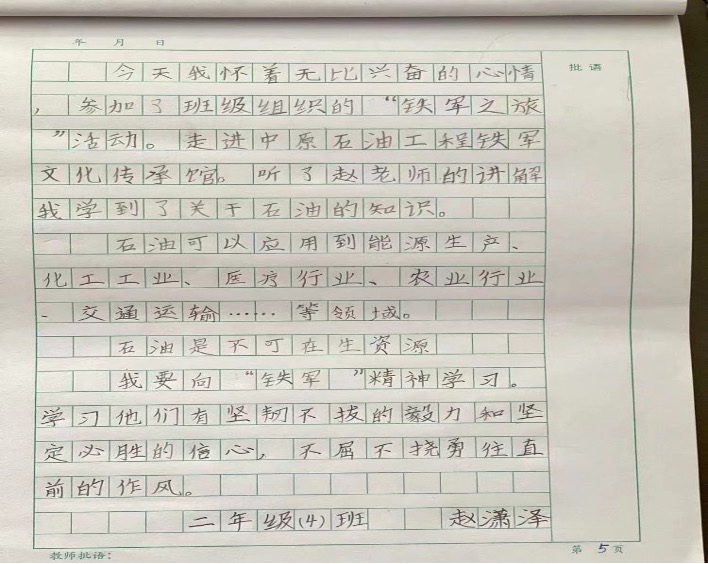 年 月 日
批语
今天我怀着无比兴奋的心情
，参加了班级组织的“铁军之旅
”活动。走进中原石油工程铁军
文化传承馆。听了赵老师的讲解
我学到了关于石油的知识。
石油可以应用到能源生产、
化工工业、医疗行业、农业行业
、交通运输……等领域。
石油是不可在生资源
我要向“铁军”精神学习。
学习他们有坚韧不拔的毅力和坚
定必胜的信心，不屈不挠勇往直
前的作风。
二年级(4)班 赵潇泽
教师批语：
第5页